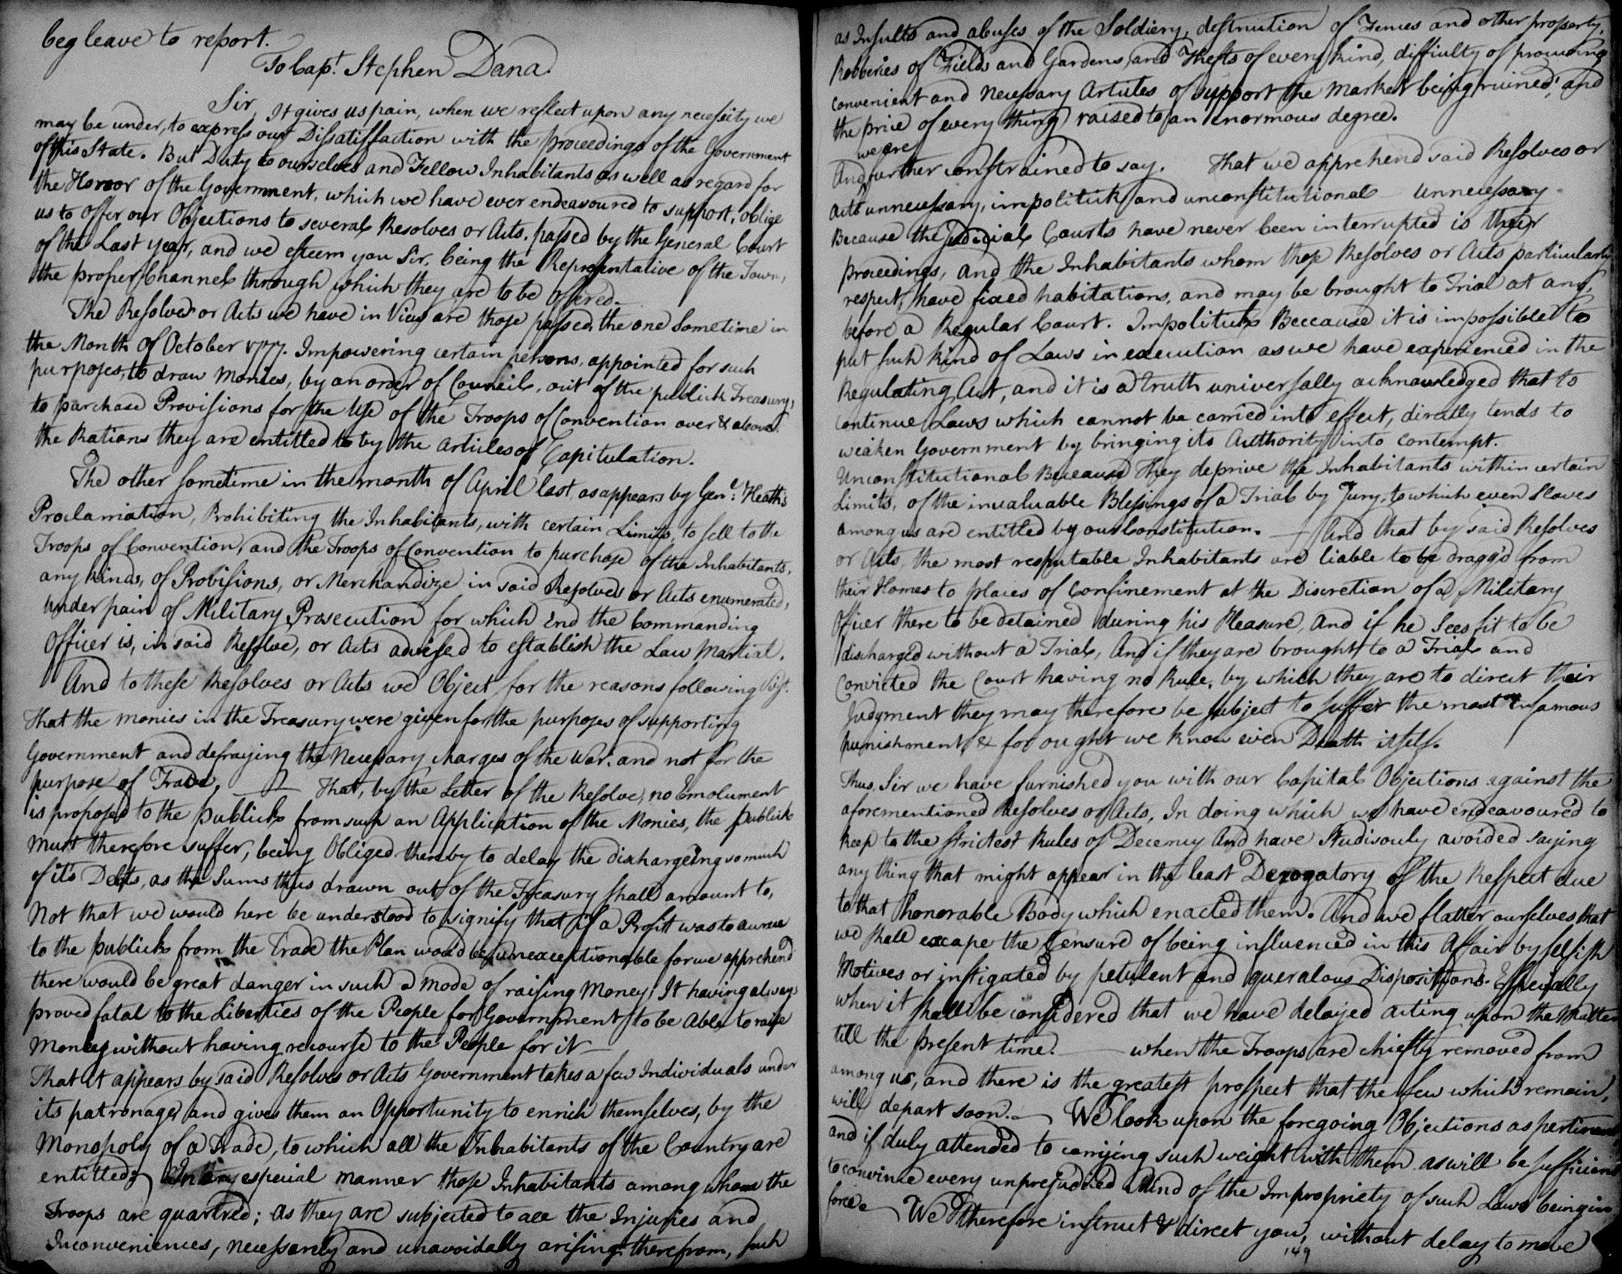 beg leave to report.
To Capt. Stephen Dana.
Sir, It gives us pain, when we reflect upon any necessity we
may be under, to express our Dissatisfaction with the proceedings of the Government
of this State. But Duty to ourselves and Fellow Inhabitants as well as regard for
the Honor of the Government, which we have ever endeavoured to support, oblige
us to offer our Objections to several Resolves or Acts, passed by the General Court
of the Last year, and we esteem you Sir, being the Representative of the Town,
the proper Channel through which they are to be offered.
The Resolves or Acts we have in View are those passed, the one Sometime in
the Month of October 1777. Impowering certain persons, appointed for such
purposes, to draw Monies, by an order of Council, out of the publick Treasury,
to purchase Provisions for the Use of the Troops of Convention over & above
the Rations they are entitled to by the Articles of Capitulation.
The other sometime in the month of April last as appears by Genl. Heath's
Proclamation, Prohibiting the Inhabitants, with certain Limits, to sell to the
Troops of Convention, and the Troops of Convention to purchase of the Inhabitants,
any kinds, of Provisions, or Merchandize in said Resolves or Acts enumerated,
under pain of Military Prosecution for which End the Commanding
Officer is, in said Resolve, or Acts advised to establish the Law Martial.
And to these Resolves or Acts we Object for the reasons following Vizt.
That the monies in the Treasury were given for the purposes of supporting
Government and defraying the Necessary charges of the War. and not for the
purpose of Trade. — That, by the Letter of the Resolve, no Emolument
is proposed to the publick from such an Application of the Monies, the publick
must therefore suffer, being Obliged thereby to delay the dischargeing so much
of it's Debts, as the Sums thus drawn out of the Treasury shall amount to,
Not that we would here be understood to signify that if a Profit was to accrue
to the publick from the Trade the Plan would be unexceptionable for we apprehend
there would be great danger in such a mode of raising Money. It having always
proved fatal to the Liberties of the People for Government to be Able to raise
Money without having recourse to the People for it —
That it appears by said Resolves or Acts Government takes a few Individuals under
its patronage, and gives them an Opportunity to enrich themselves, by the
Monopoly of a Trade, to which all the Inhabitants of the Country are
entitled; In an especial manner those Inhabitants among whom the
Troops are quartred; as they are subjected to all the Injuries and
Inconveniences, necessarely and unavoidably arising therefrom, such
as Insults and abuses of the Soldiery, destruction of Fences and other property,
Robberies of Fields and Gardens, and Thefts of every kind, difficulty of procuring
convenient and Necessary Articles of support the Market being ruined, and
the price of every thing raised to an enormous degree.
we are
And further constrained to say. That we apprehend said Resolves or
Acts unnecessary, impolitick, and unconstitutional Unnecessary
Because the Judicial Courts have never been interrupted is their
proceedings, and the Inhabitants whom those Resolves or Acts particularly
respect, have fixed habitations, and may be brought to Trial at any,
before a Regular Court. Impolitick Beccause it is impossible to
put such kind of Laws in execution as we have experienced in the
Regulating Act, and it is a truth universally acknowledged that to
continue Laws which cannot be carried into effect, directly tends to
weaken Government by bringing its Authority into contempt.
Unconstitutional Because they deprive the Inhabitants within certain
Limits, of the invaluable Blessings of a Trial by Jury, to which even Slaves
among us are entitled by our Constitution. — And that by said Resolves
or Acts, the most reputable Inhabitants are liable to be dragg'd from
their Homes to places of Confinement at the Discretion of a Military
Officer there to be detained during his Pleasure, And if he Sees fit to be
discharged without a Trial, And if they are brought to a Trial and
Convicted the Court having no Rule, by which they are to direct their
Judgment they may therefore be subject to suffer the most infamous
punishment & for ought we know even Death itself.
Thus, Sir we have furnished you with our Capital Objections against the
aforementioned Resolves or Acts, In doing which we have endeavoured to
keep to the strictest Rules of Decency And have Studiously avoided saying
any thing that might appear in the least Derogatory of the Respect due
to that honorable Body which enacted them. And we flatter ourselves that
we shall escape the Censure of being influenced in this Affair by selfish
Motives or instigated by petulent and queralous Dispositions. Especially
when it shall be considered that we have delayed acting upon the Matter
till the present time. — when the Troops are chiefly removed from
among us, and there is the greatest prospect that the few which remain,
will depart soon. — We look upon the foregoing Objections as pertinent
and if duly attended to carrying such weight with them as will be sufficient
to convince every unprejudiced Mind of the Impropriety of such Laws being in
force. We therefore instruct & direct you, without delay to move
149